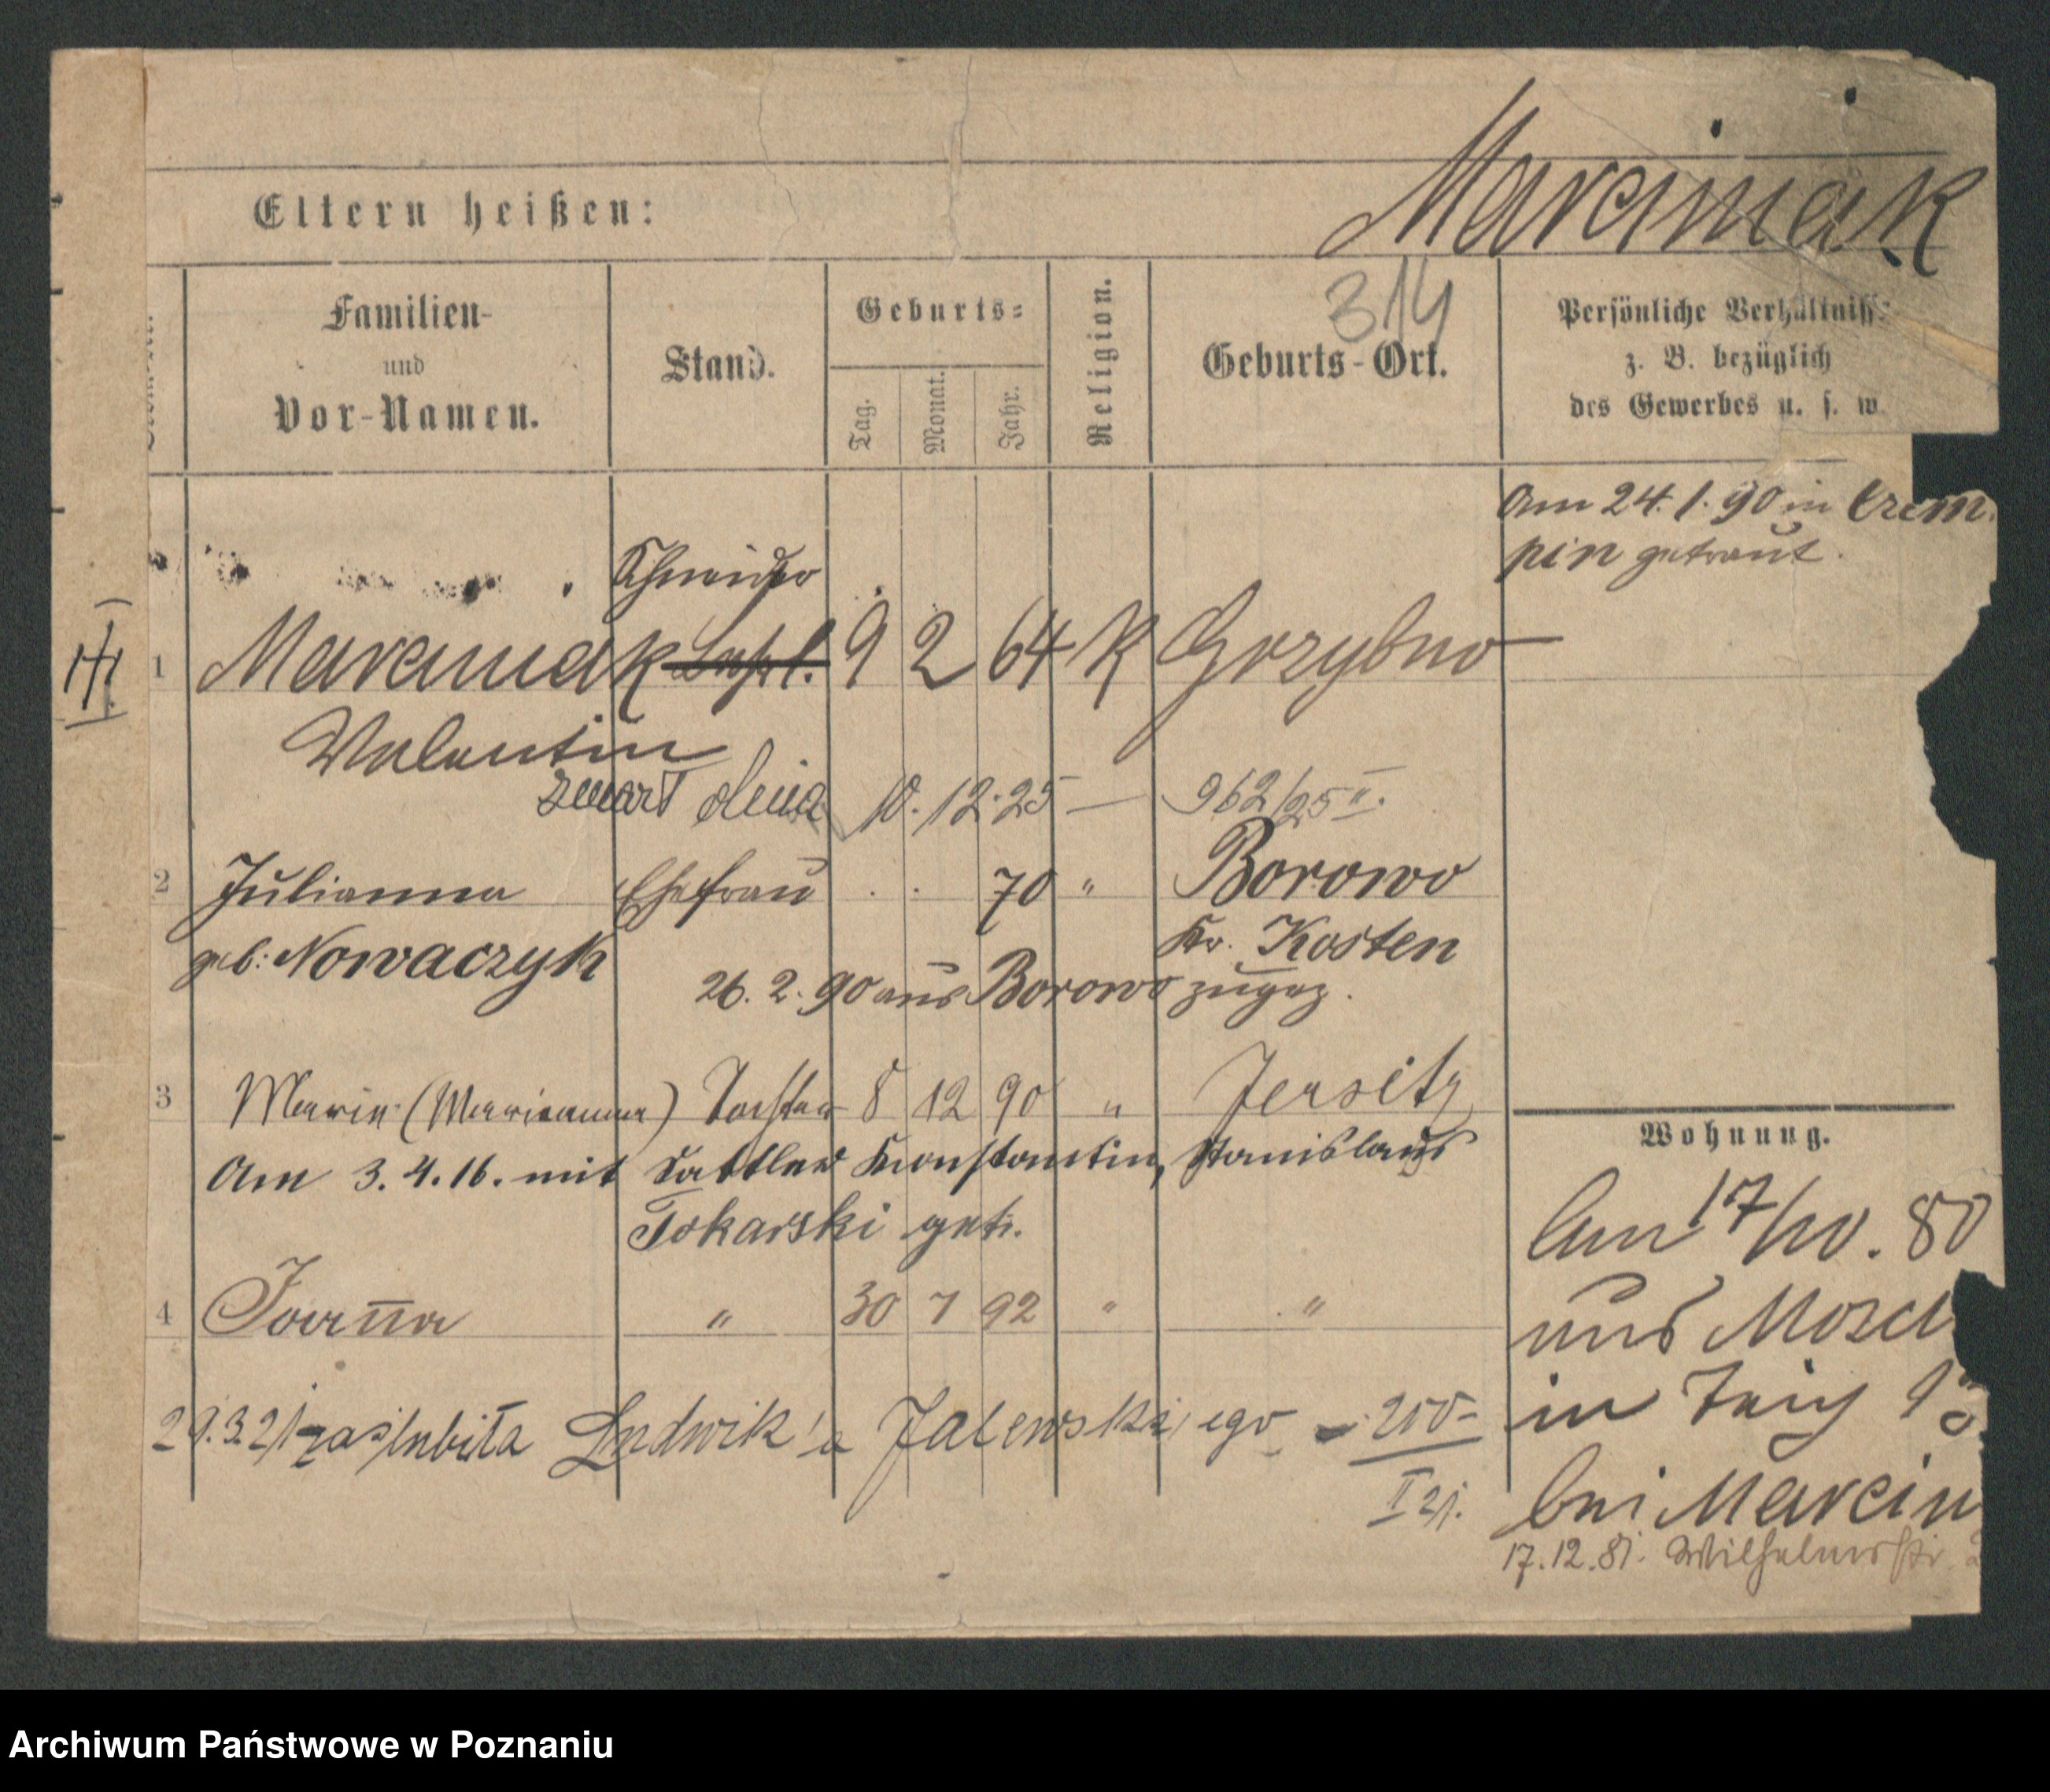 Marciniak
Eltern heißen:
314
Familien-
und
Vor-Namen.
Stand.
Geburts-
Tag.
Monat.
Jahr.
Religion.
Geburts-Ort.
Persönliche Verhältniss
z. B. bezüglich
des Gewerbes u. s. w.
Am 24. 1. 90 in Czem
pin getraut.
Schneider
III
1 Marciniak 9 2 64 K Grzybno
Valentin
zmarł dnia 10. 12. 25 — 962/25 II.
2 Julianna Ehefrau . . 70 " Borowo
geb: Nowaczyk Kr. Kosten
26. 2. 90 aus Borowo zugez.
3 Marie (Marianna) Tochter 8 12 90 " Jersitz
Am 3. 4. 16. mit Sattler Konstantin, Stanislaus
Tokarski getr.
4 Joanna " 30 7 92 " "
29. 3. 21 zaślubiła Ludwik'a Jalewski,ego - 200-
I 21.
Wohnung.
Am 17/10. 80
aus Mosch
in
bei Marcin
17. 12. 81. Wilhelmstr.
Archiwum Państwowe w Poznaniu